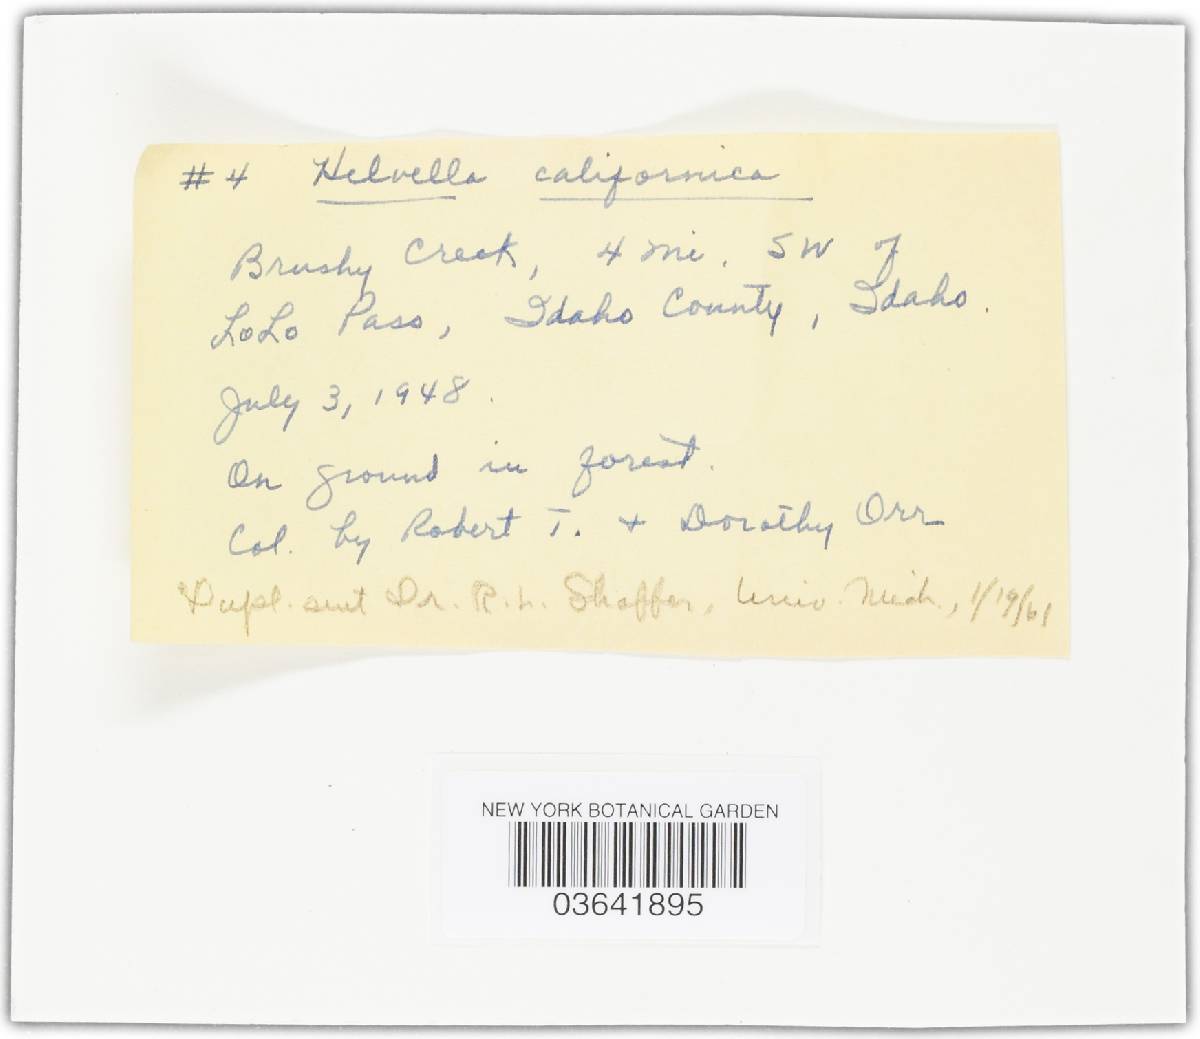 #4 Helvella californica
Brushy Creek, 4 mi. SW of
LoLo Pass, Idaho County, Idaho.
July 3, 1948.
On ground in forest.
Col. by Robert T. + Dorothy Orr
Dupl. sent Dr. R. L. Shaffer, Univ. Mich., 1/19/61
NEW YORK BOTANICAL GARDEN
03641895